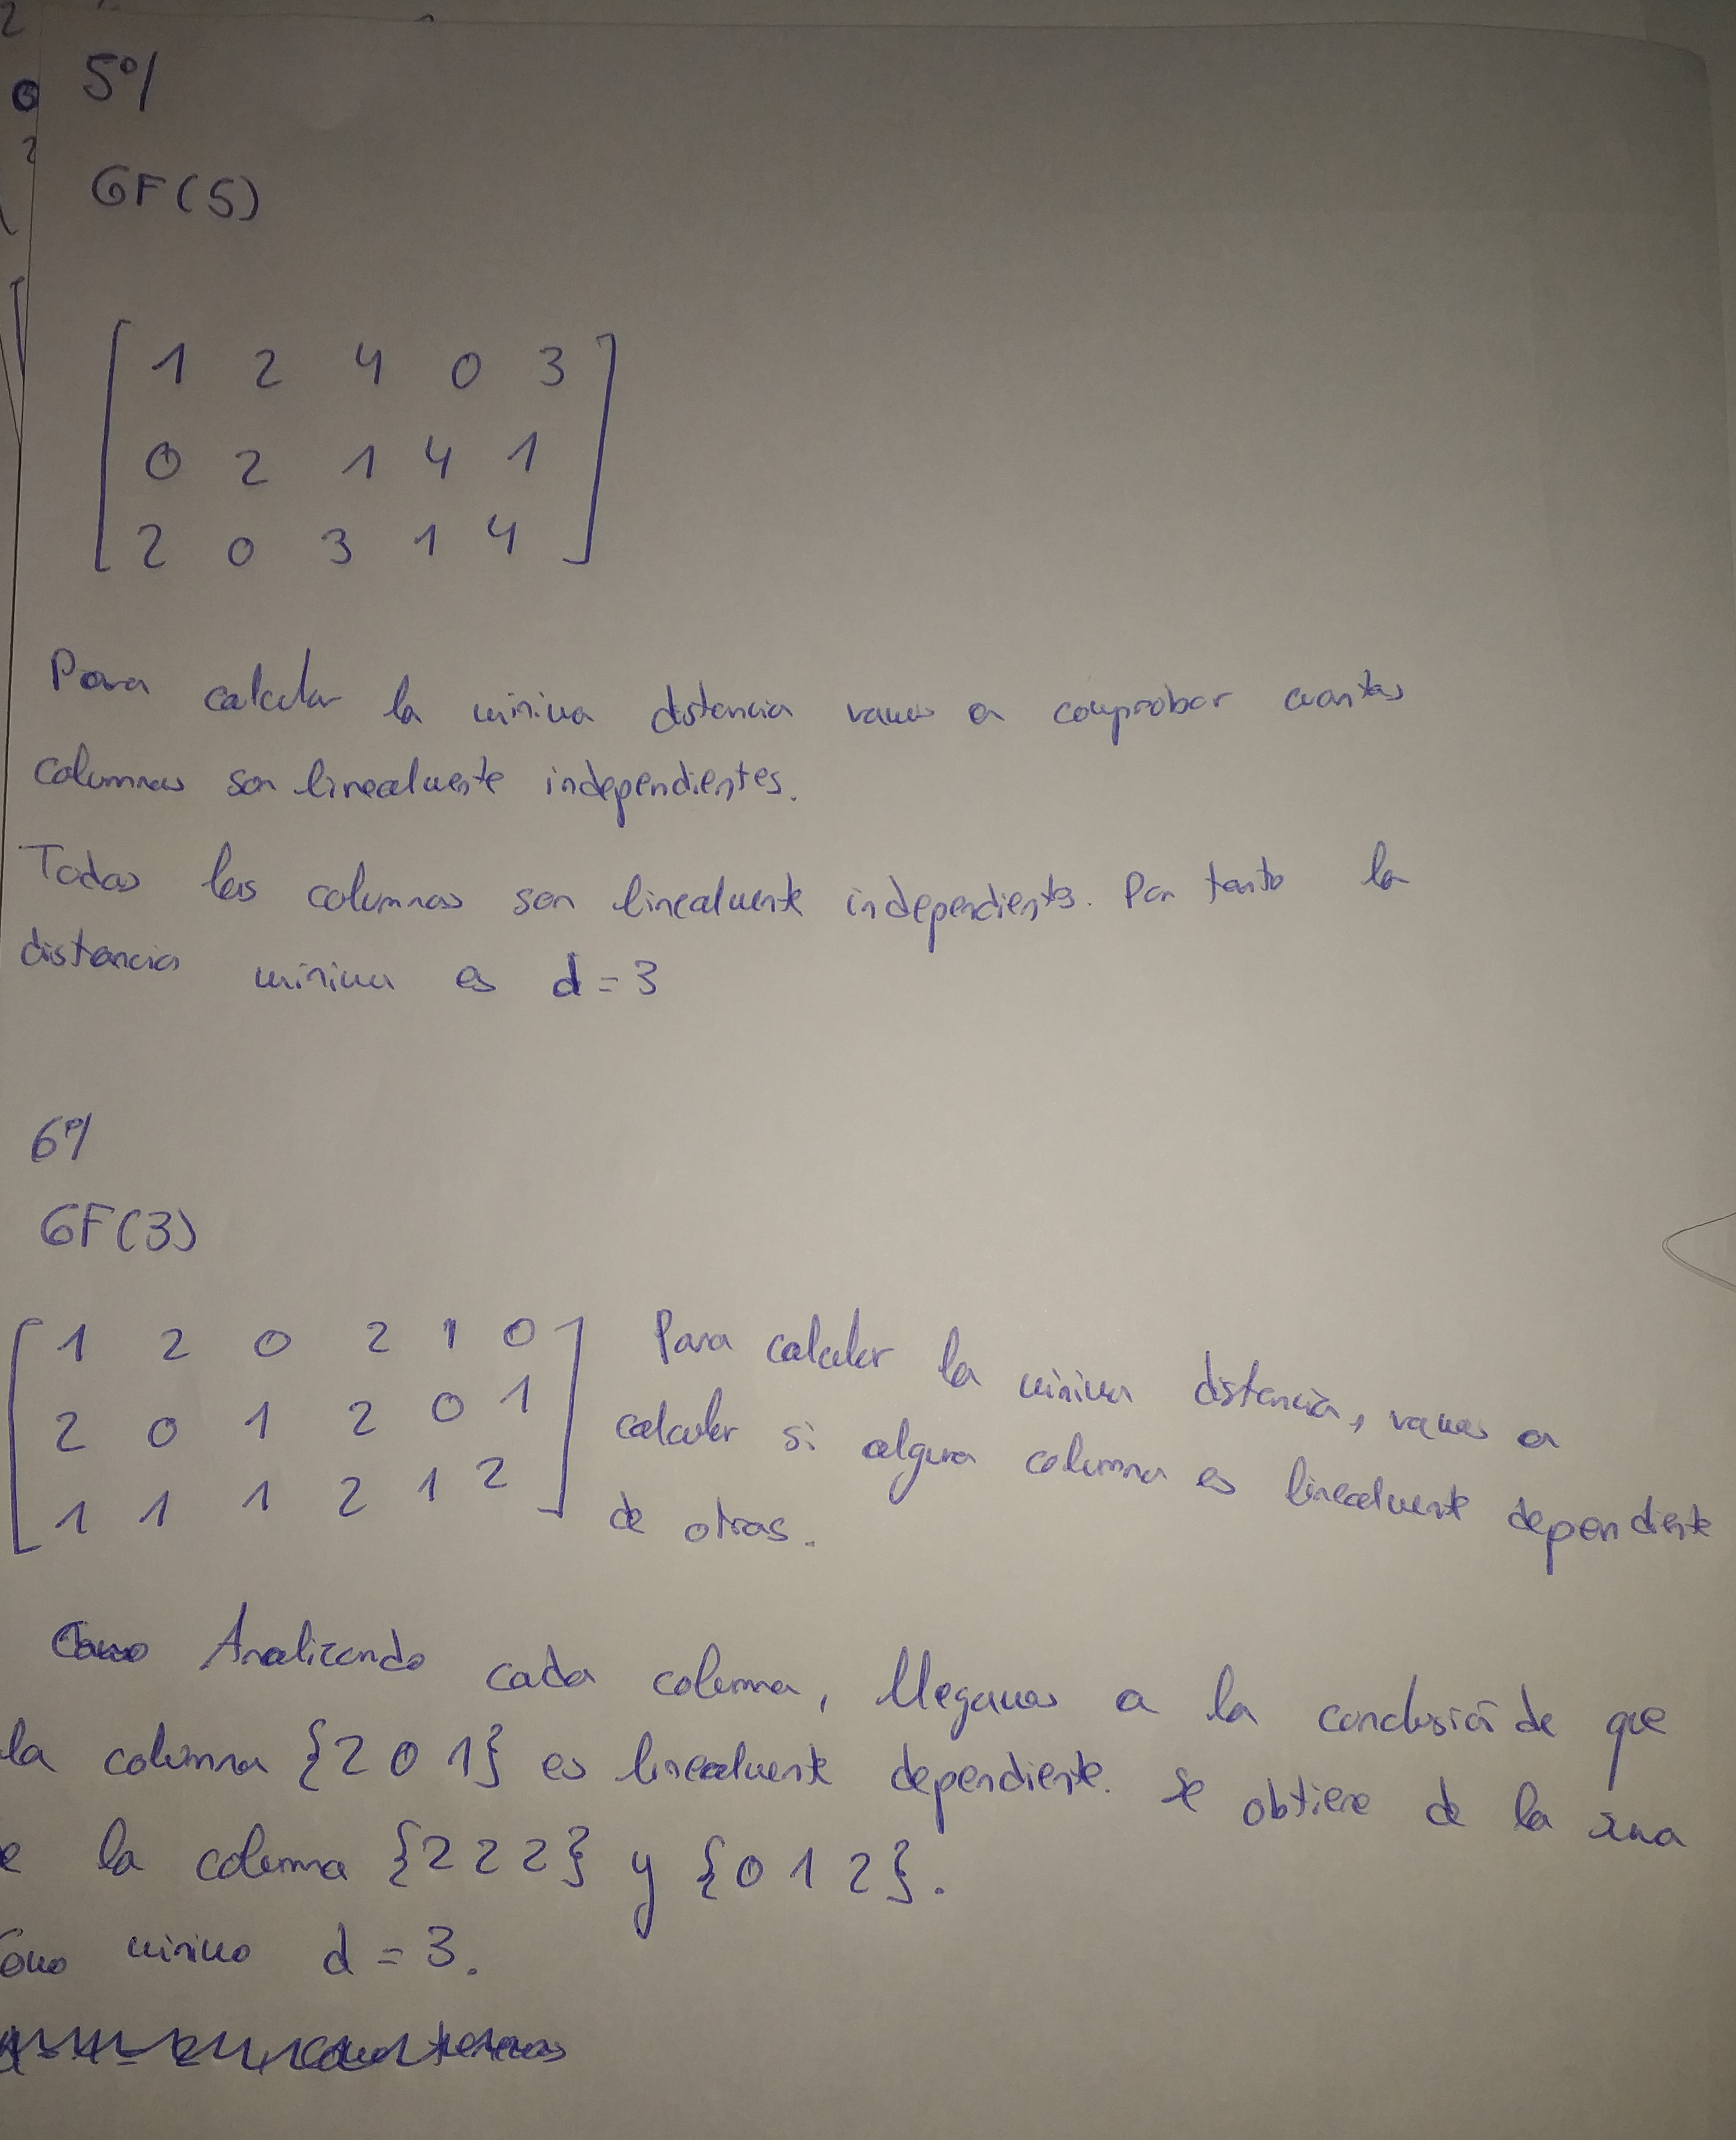 5º/
GF(5)
1 2 4 0 3
0 2 1 4 1
2 0 3 1 4
Para calcular la mínima distancia vamos a comprobar cuantas
columnas son linealmente independientes.
Todas las columnas son linealmente independientes. Por tanto la
distancia mínima es d = 3
6º/
GF(3)
1 2 0 2 1 0
2 0 1 2 0 1
1 1 1 2 1 2
Para calcular la mínima distancia, vamos a
calcular si alguna columna es linealmente dependiente
de otras.
Analizando cada columna, llegamos a la conclusión de que
la columna {2 0 1} es linealmente dependiente. Se obtiene de la suma
la columna {2 2 2} y {0 1 2}.
mínimo d = 3.